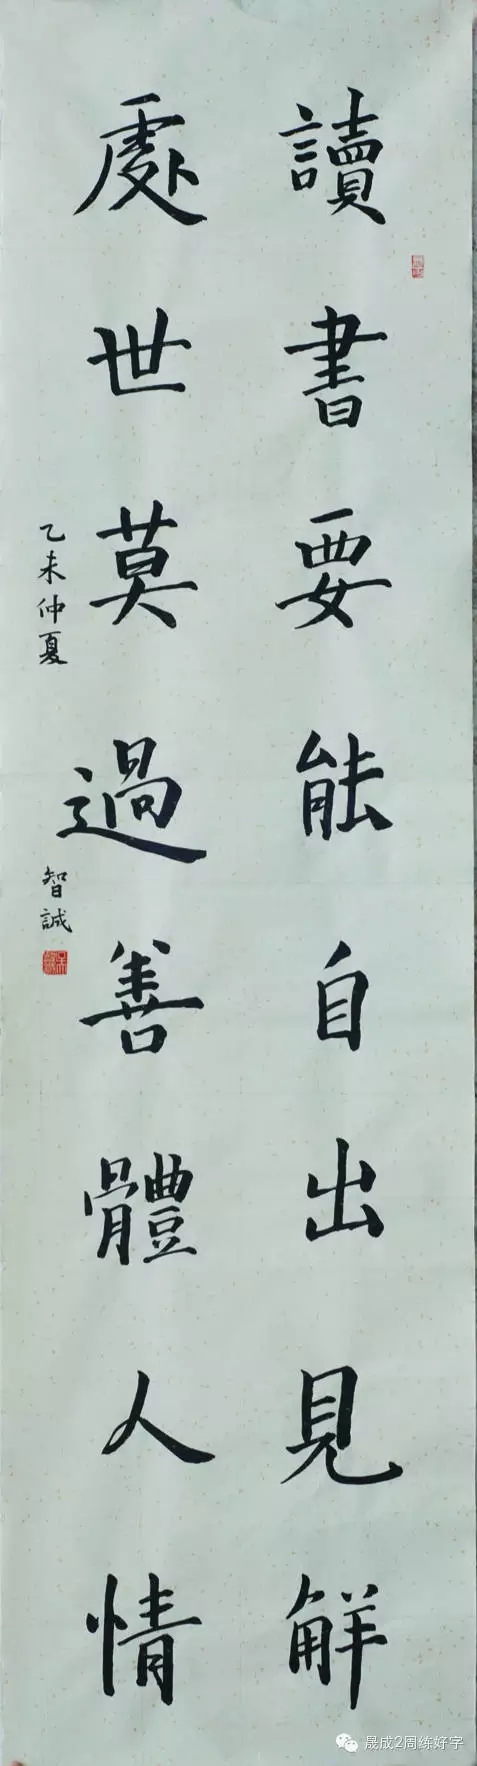 讀書要能自出見解
處世莫過善體人情
乙未仲夏
智誠
晟成2周练好字